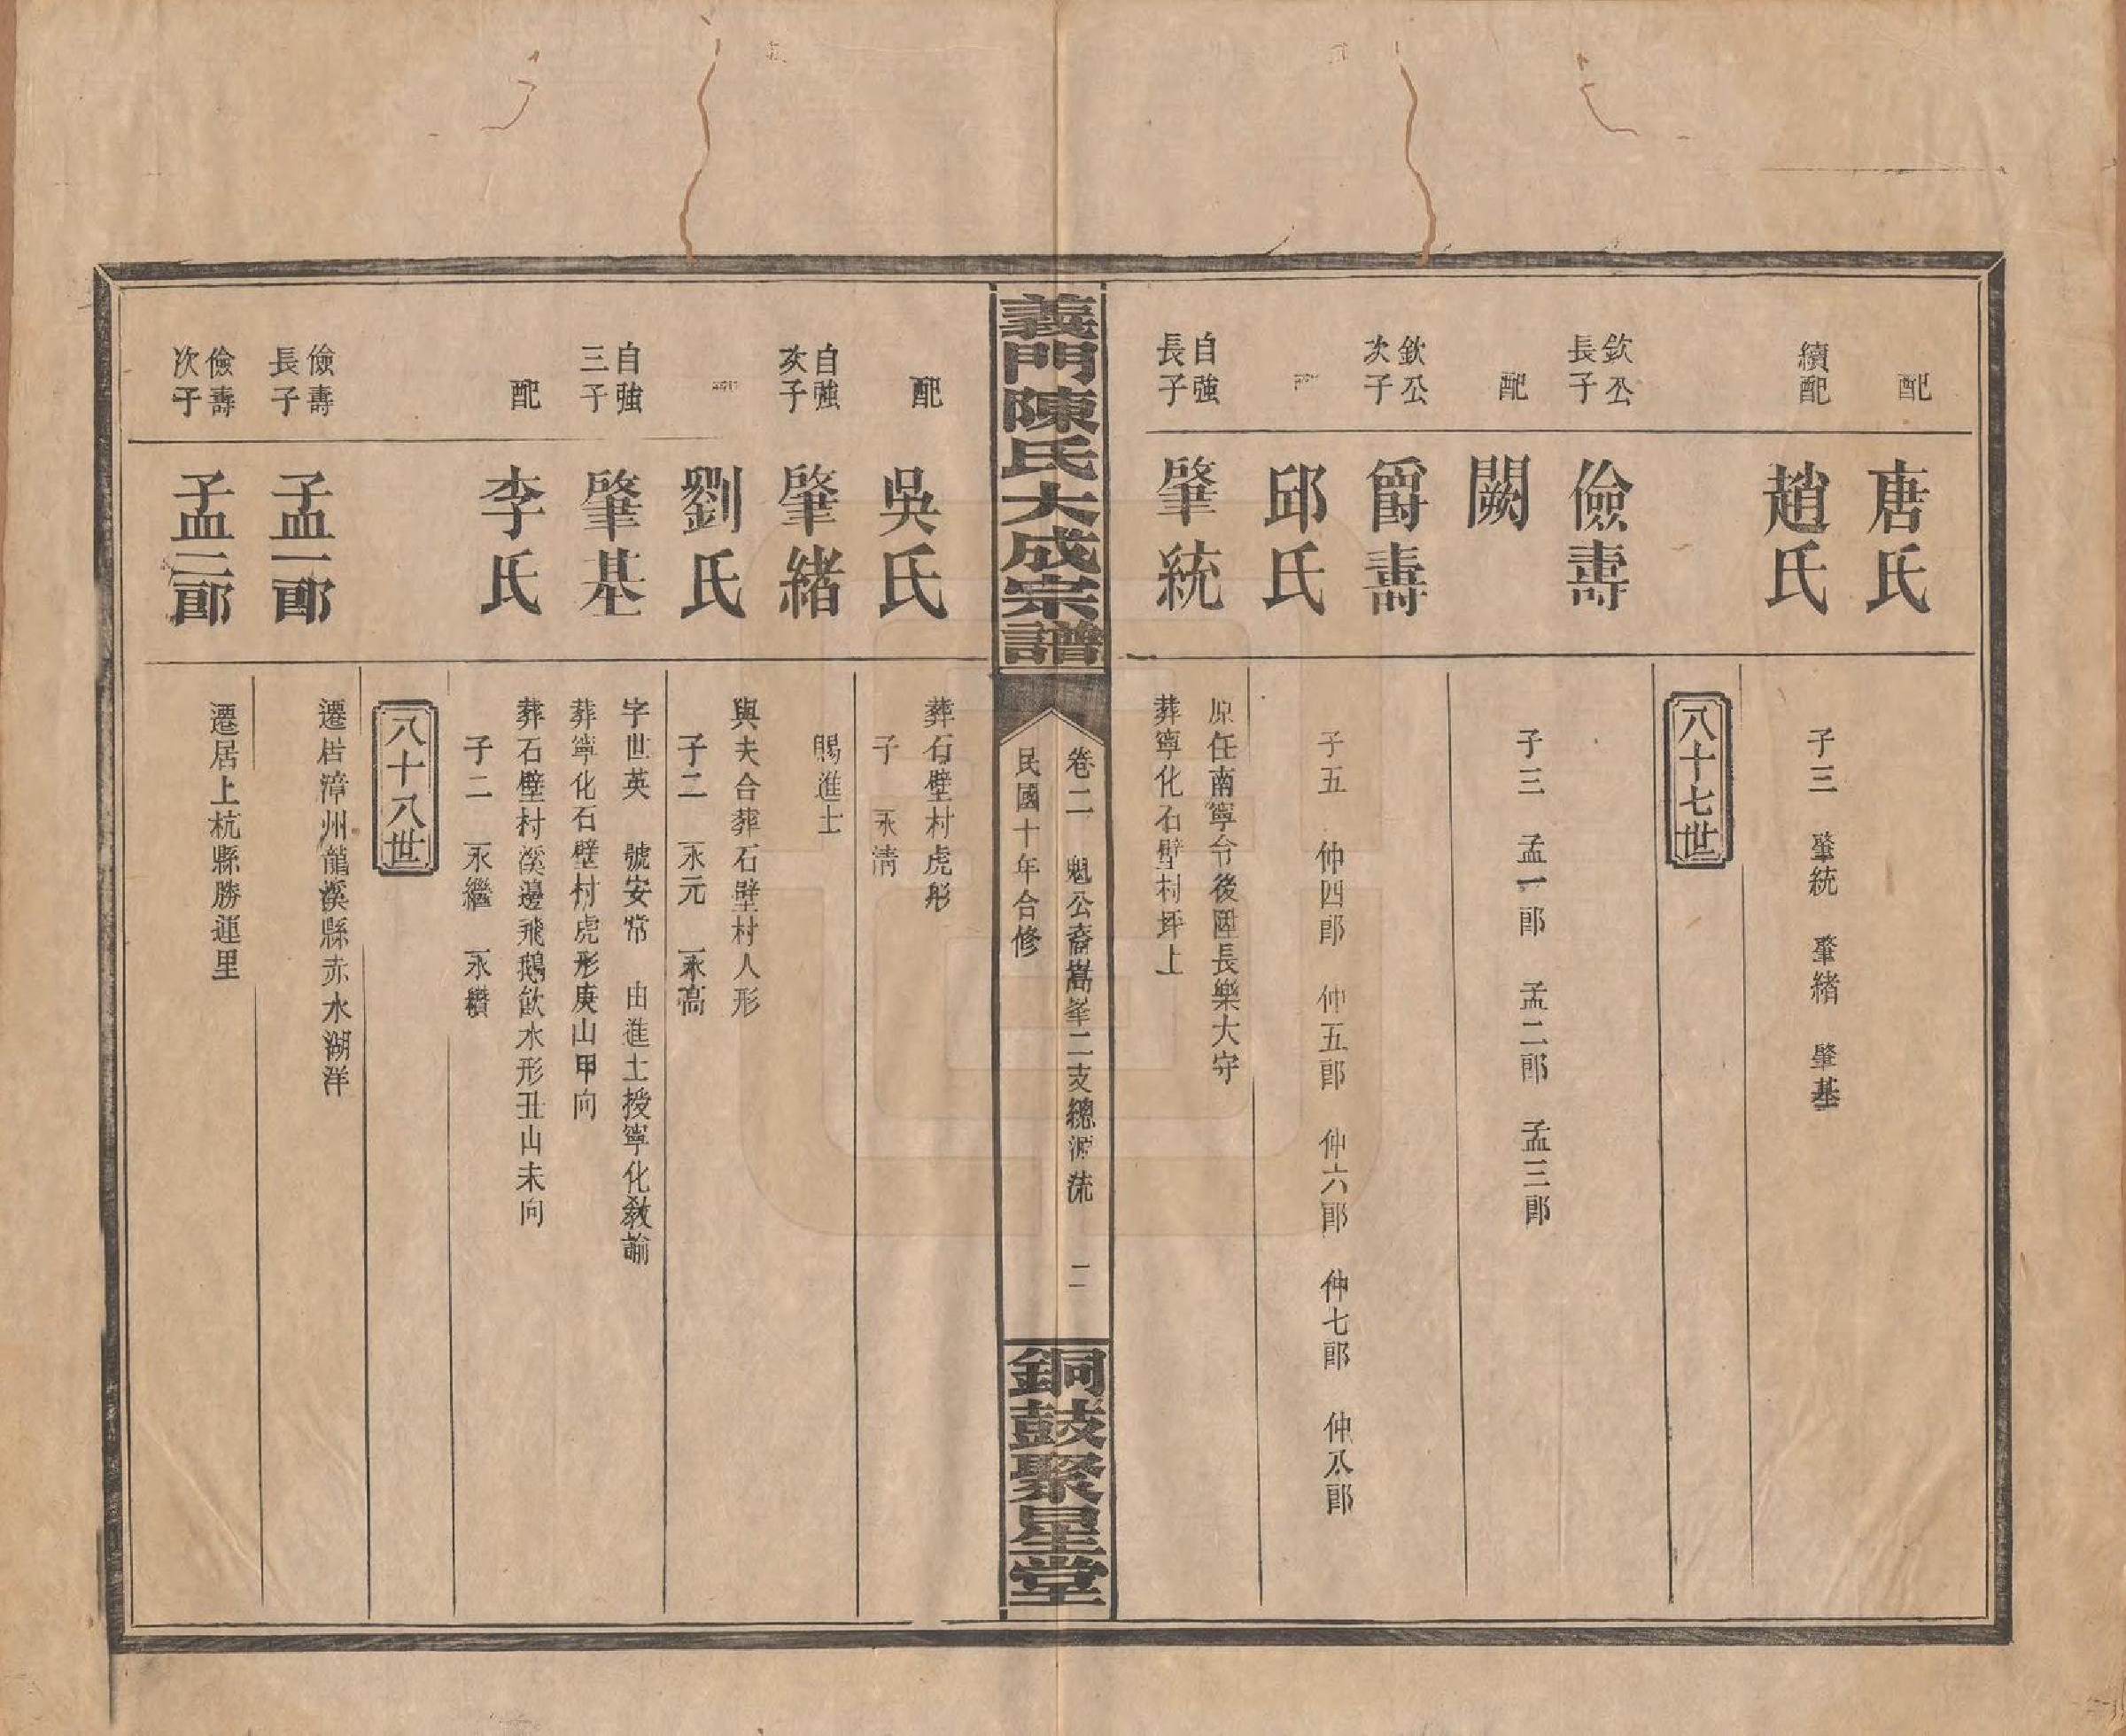 配
唐氏
續配
趙氏
子三　肇統　肇緒　肇基
八十七世
欽公
長子
儉壽
配
闕
子三　孟一郎　孟二郎　孟三郎
欽公
次子
爵壽
配
邱氏
子五　仲四郎　仲五郎　仲六郎　仲七郎　仲八郎
自強
長子
肇統
原任南寧令後陞長樂大守
葬寧化石壁村坪上
義門陳氏大成宗譜
卷二　魁公裔嵩峯二支總源流　二
民國十年合修
銅鼓聚星堂
配
吳氏
葬石壁村虎形
子　永清
自強
次子
肇緒
賜進士
配
劉氏
與夫合葬石壁村人形
子二　永元　永高
自強
三子
肇基
字世英　號安常　由進士授寧化教諭
葬寧化石壁村虎形庚山甲向
配
李氏
葬石壁村溪邊飛鵝飲水形丑山未向
子二　永繼　永纘
八十八世
儉壽
長子
孟一郎
遷居漳州龍溪縣赤水湖洋
儉壽
次子
孟二郎
遷居上杭縣勝運里